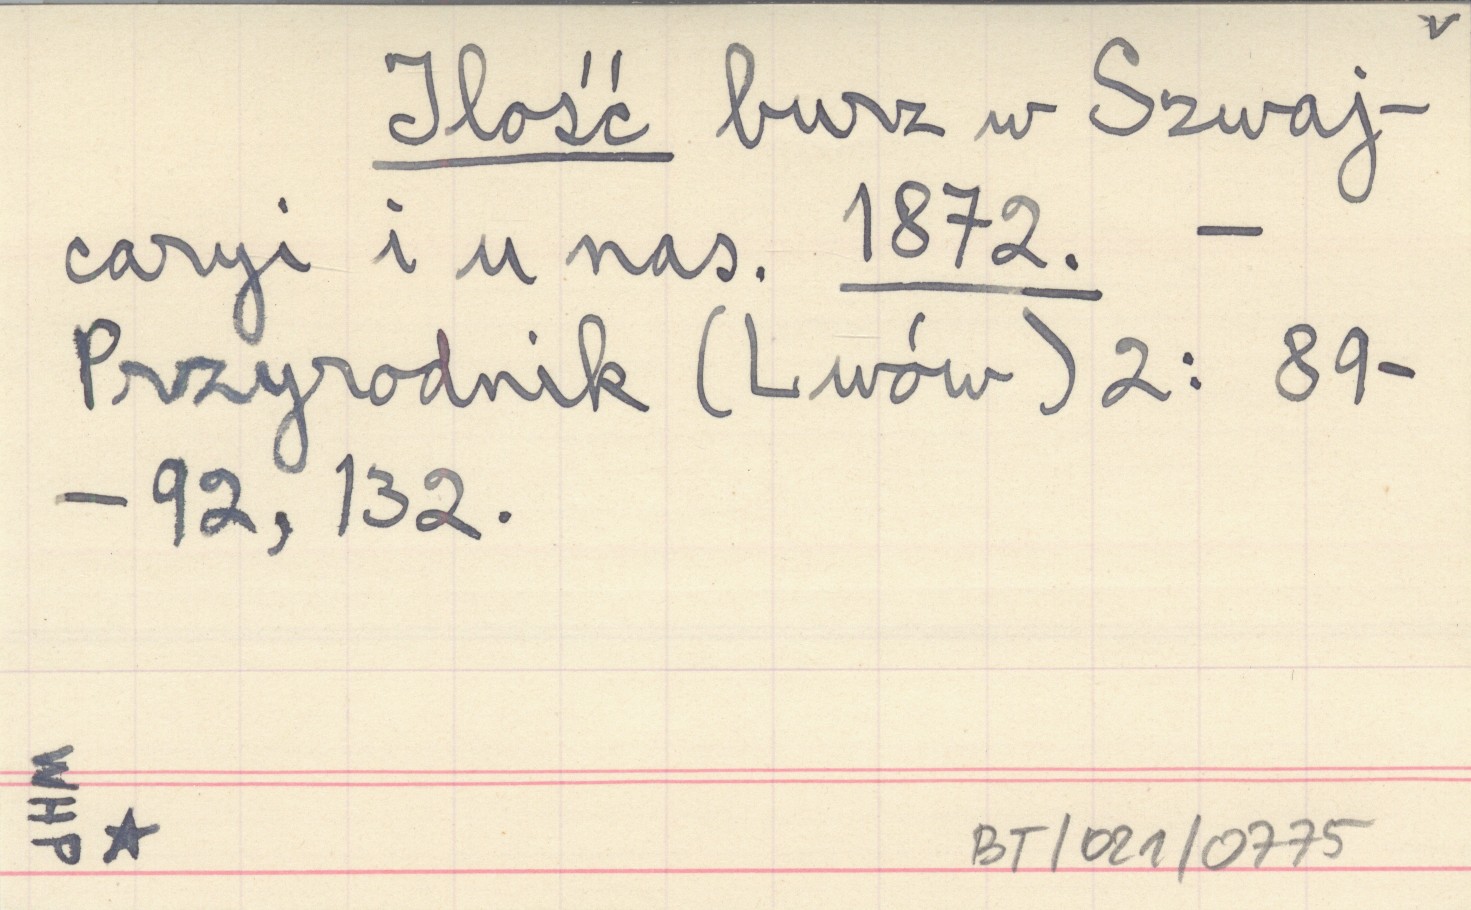 v
Ilość burz w Szwaj-
caryi i u nas. 1872. –
Przyrodnik (Lwów) 2: 89-
–92, 132.
WHP ★
BT/021/0775